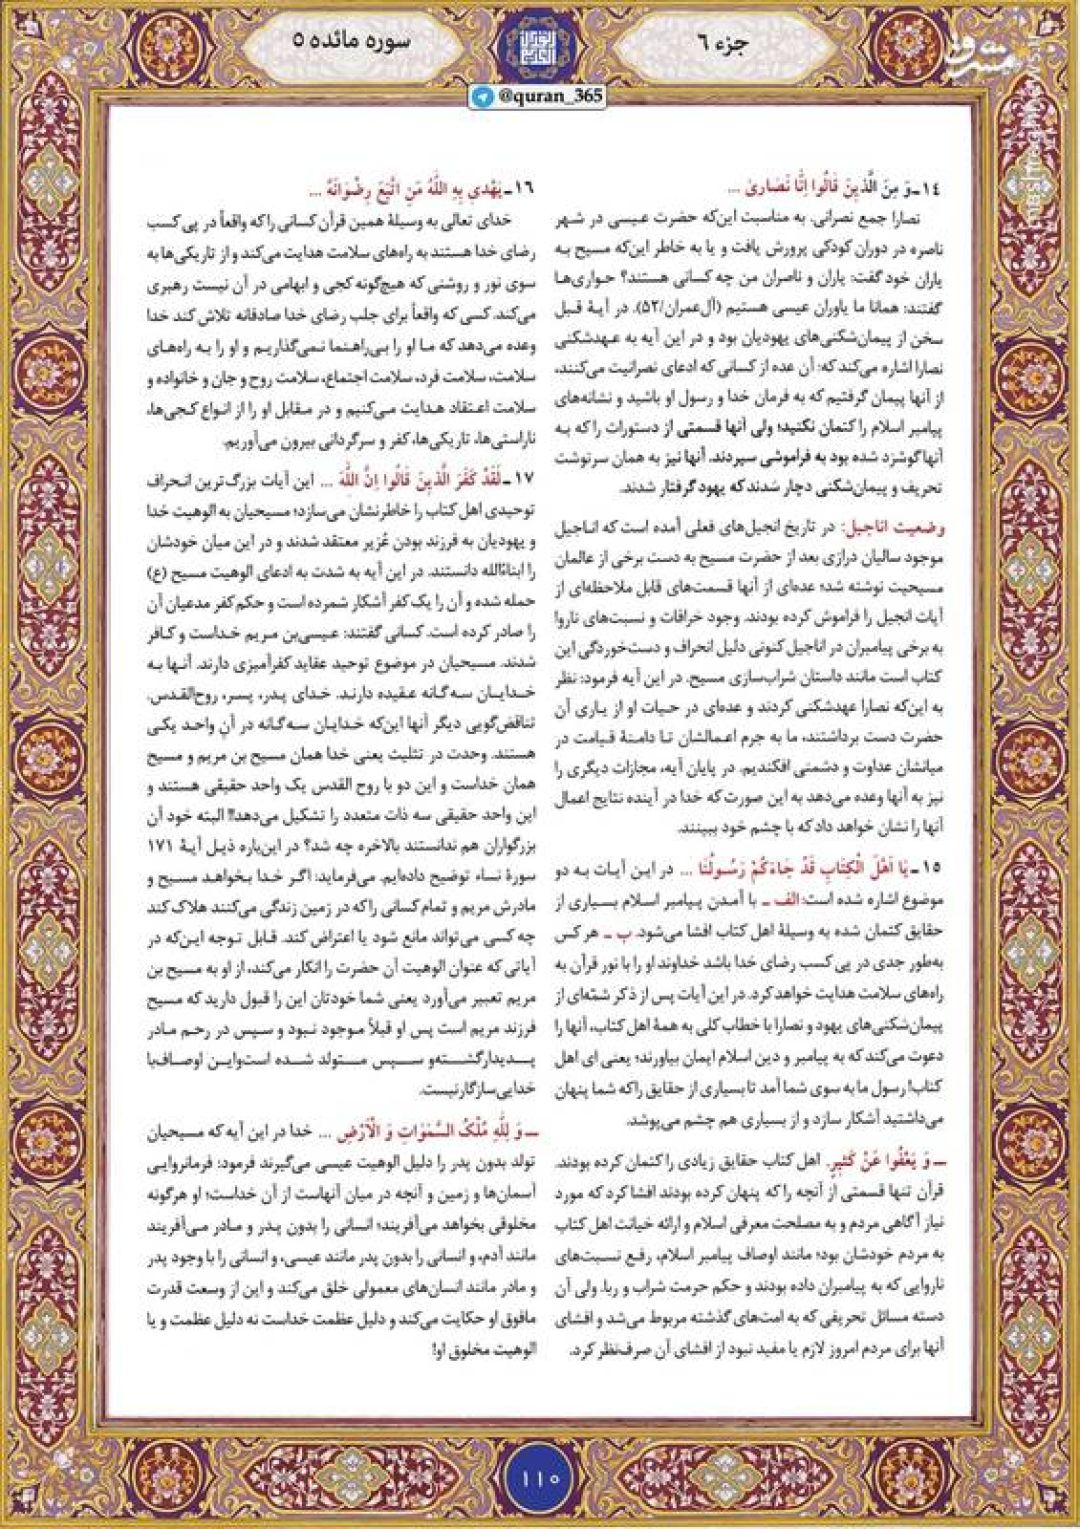 جزء ۶
سوره مائده ۵
@quran_365
۱۴ـ وَ مِنَ الَّذِینَ قَالُوا اِنَّا نَصَاریٰ ...
نصارا جمع نصرانی، به مناسبت این‌که حضرت عیسی در شهر
ناصره در دوران کودکی پرورش یافت و یا به خاطر این‌که مسیح به
یاران خود گفت: یاران و ناصران من چه کسانی هستند؟ حواری‌ها
گفتند: همانا ما یاوران عیسی هستیم (آل‌عمران/۵۲). در آیهٔ قبل
سخن از پیمان‌شکنی‌های یهودیان بود و در این آیه به عهدشکنی
نصارا اشاره می‌کند که: آن عده از کسانی که ادعای نصرانیت می‌کنند،
از آنها پیمان گرفتیم که به فرمان خدا و رسول او باشید و نشانه‌های
پیامبر اسلام را کتمان نکنید؛ ولی آنها قسمتی از دستورات را که به
آنها گوشزد شده بود به فراموشی سپردند. آنها نیز به همان سرنوشت
تحریف و پیمان‌شکنی دچار شدند که یهود گرفتار شدند.
وضعیت اناجیل: در تاریخ انجیل‌های فعلی آمده است که اناجیل
موجود سالیان درازی بعد از حضرت مسیح به دست برخی از عالمان
مسیحیت نوشته شد؛ عده‌ای از آنها قسمت‌های قابل ملاحظه‌ای از
آیات انجیل را فراموش کرده بودند. وجود خرافات و نسبت‌های ناروا
به برخی پیامبران در اناجیل کنونی دلیل انحراف و دست‌خوردگی این
کتاب است مانند داستان شراب‌سازی مسیح. در این آیه فرمود: نظر
به این‌که نصارا عهدشکنی کردند و عده‌ای در حیات او از یاری آن
حضرت دست برداشتند، ما به جرم اعمالشان تا دامنهٔ قیامت در
میانشان عداوت و دشمنی افکندیم. در پایان آیه، مجازات دیگری را
نیز به آنها وعده می‌دهد به این صورت که خدا در آینده نتایج اعمال
آنها را نشان خواهد داد که با چشم خود ببینند.
۱۵ـ یَا اَهْلَ الْکِتَابِ قَدْ جَاءَکُمْ رَسُولُنَا ... در این آیات به دو
موضوع اشاره شده است: الف ـ با آمدن پیامبر اسلام بسیاری از
حقایق کتمان شده به وسیلهٔ اهل کتاب افشا می‌شود. ب ـ هر کس
به‌طور جدی در پی کسب رضای خدا باشد خداوند او را با نور قرآن به
راه‌های سلامت هدایت خواهد کرد. در این آیات پس از ذکر شمّه‌ای از
پیمان‌شکنی‌های یهود و نصارا با خطاب کلی به همهٔ اهل کتاب، آنها را
دعوت می‌کند که به پیامبر و دین اسلام ایمان بیاورند؛ یعنی ای اهل
کتاب! رسول ما به سوی شما آمد تا بسیاری از حقایق را که شما پنهان
می‌داشتید آشکار سازد و از بسیاری هم چشم می‌پوشد.
ـ وَ یَعْفُوا عَنْ کَثِیرٍ. اهل کتاب حقایق زیادی را کتمان کرده بودند.
قرآن تنها قسمتی از آنچه را که پنهان کرده بودند افشا کرد که مورد
نیاز آگاهی مردم و به مصلحت معرفی اسلام و ارائه خیانت اهل کتاب
به مردم خودشان بود؛ مانند اوصاف پیامبر اسلام، رفع نسبت‌های
ناروایی که به پیامبران داده بودند و حکم حرمت شراب و ربا. ولی آن
دسته مسائل تحریفی که به امت‌های گذشته مربوط می‌شد و افشای
آنها برای مردم امروز لازم یا مفید نبود از افشای آن صرف‌نظر کرد.
۱۶ـ یَهْدِی بِهِ اللّٰهُ مَنِ اتَّبَعَ رِضْوَانَهُ ...
خدای تعالی به وسیلهٔ همین قرآن کسانی را که واقعاً در پی کسب
رضای خدا هستند به راه‌های سلامت هدایت می‌کند و از تاریکی‌ها به
سوی نور و روشنی که هیچ‌گونه کجی و ابهامی در آن نیست رهبری
می‌کند. کسی که واقعاً برای جلب رضای خدا صادقانه تلاش کند خدا
وعده می‌دهد که ما او را بی‌راهنما نمی‌گذاریم و او را به راه‌های
سلامت، سلامت فرد، سلامت اجتماع، سلامت روح و جان و خانواده و
سلامت اعتقاد هدایت می‌کنیم و در مقابل او را از انواع کجی‌ها،
ناراستی‌ها، تاریکی‌ها، کفر و سرگردانی بیرون می‌آوریم.
۱۷ـ لَقَدْ کَفَرَ الَّذِینَ قَالُوا اِنَّ اللّٰهَ ... این آیات بزرگ‌ترین انحراف
توحیدی اهل کتاب را خاطرنشان می‌سازد؛ مسیحیان به الوهیت خدا
و یهودیان به فرزند بودن عُزیر معتقد شدند و در این میان خودشان
را ابناءالله دانستند. در این آیه به شدت به ادعای الوهیت مسیح (ع)
حمله شده و آن را یک کفر آشکار شمرده است و حکم کفر مدعیان آن
را صادر کرده است. کسانی گفتند: عیسی‌بن مریم خداست و کافر
شدند. مسیحیان در موضوع توحید عقاید کفرآمیزی دارند. آنها به
خدایان سه گانه عقیده دارند. خدای پدر، پسر، روح‌القدس.
تناقض‌گویی دیگر آنها این‌که خدایان سه گانه در آنِ واحد یکی
هستند. وحدت در تثلیث یعنی خدا همان مسیح بن مریم و مسیح
همان خداست و این دو با روح القدس یک واحد حقیقی هستند و
این واحد حقیقی سه ذات متعدد را تشکیل می‌دهد!! البته خود آن
بزرگواران هم ندانستند بالاخره چه شد؟ در این‌باره ذیل آیهٔ ۱۷۱
سورهٔ نساء توضیح داده‌ایم. می‌فرماید: اگر خدا بخواهد مسیح و
مادرش مریم و تمام کسانی را که در زمین زندگی می‌کنند هلاک کند
چه کسی می‌تواند مانع شود یا اعتراض کند. قابل توجه این‌که در
آیاتی که عنوان الوهیت آن حضرت را انکار می‌کند، از او به مسیح بن
مریم تعبیر می‌آورد یعنی شما خودتان این را قبول دارید که مسیح
فرزند مریم است پس او قبلاً موجود نبود و سپس در رحم مادر
پدیدار گشته و سپس متولد شده است و این اوصاف با
خدایی سازگار نیست.
ـ وَ لِلّٰهِ مُلْکُ السَّمٰوَاتِ وَ الْاَرْضِ ... خدا در این آیه که مسیحیان
تولد بدون پدر را دلیل الوهیت عیسی می‌گیرند فرمود: فرمانروایی
آسمان‌ها و زمین و آنچه در میان آنهاست از آن خداست؛ او هرگونه
مخلوقی بخواهد می‌آفریند؛ انسانی را بدون پدر و مادر می‌آفریند
مانند آدم، و انسانی را بدون پدر مانند عیسی، و انسانی را با وجود پدر
و مادر مانند انسان‌های معمولی خلق می‌کند و این از وسعت قدرت
مافوق او حکایت می‌کند و دلیل عظمت خداست نه دلیل عظمت و یا
الوهیت مخلوق او!
۱۱۰